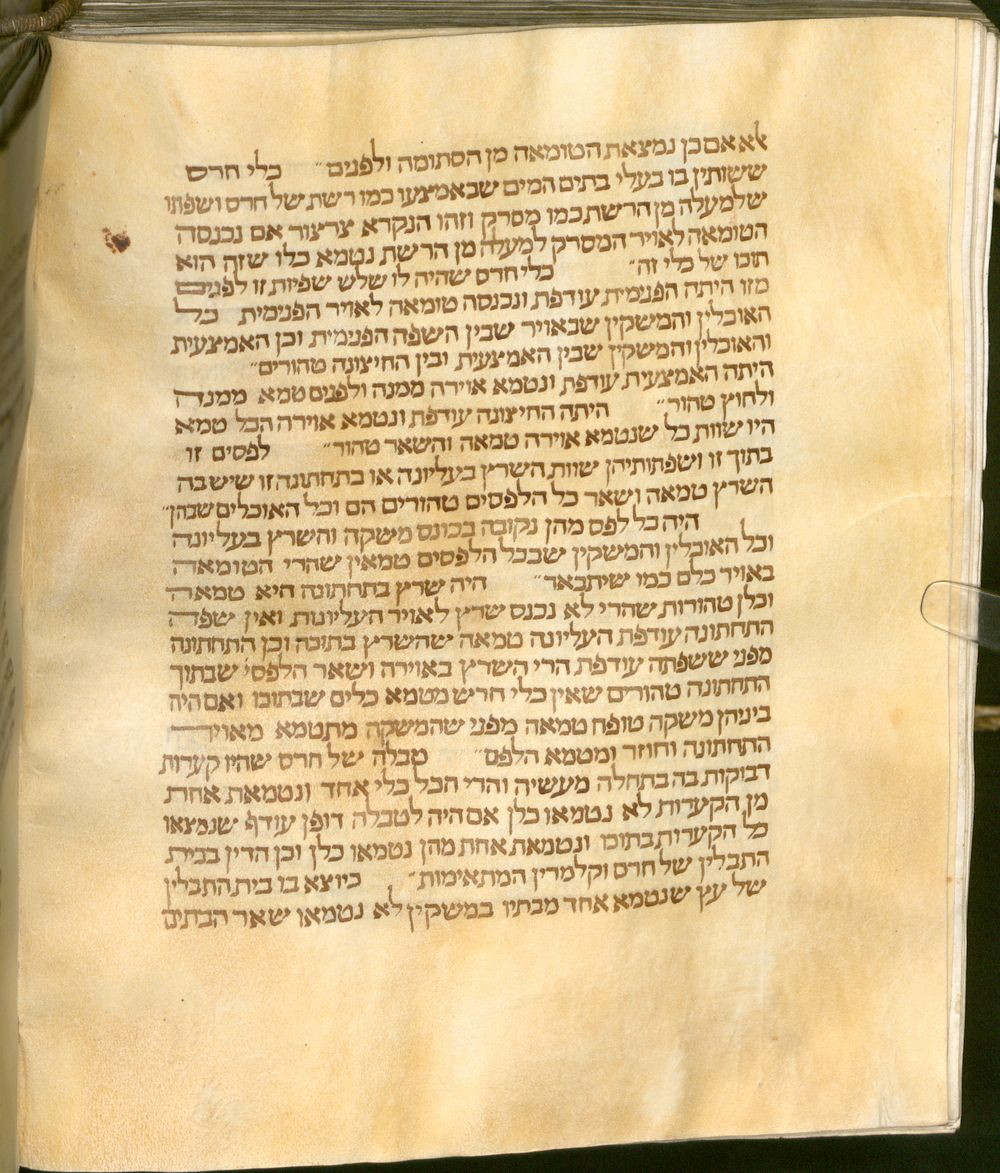 אלא אם כן נמצאת הטומאה מן הסתומה ולפנים״ כלי חרס
ששותין בו בעלי בתים המים שבאמצעו כמו רשת של חרס ושפתו
שלמעלה מן הרשת כמו מסרק וזהו הנקרא צרצור אם נכנסה
הטומאה לאויר המסרק למעלה מן הרשת נטמא כלו שזה הוא
תוכו של כלי זה״ כלי חרס שהיה לו שלש שפיות זו לפנים
מזו היתה הפנימית עודפת ונכנסה טומאה לאויר הפנימית כל
האוכלין והמשקין שבאויר שבין השפה הפנימית וכן האמצעית
והאוכלין והמשקין שבין האמצעית ובין החיצונה טהורים״
היתה האמצעית עודפת ונטמא אוירה ממנה ולפנים טמא ממנה
ולחוץ טהור״ היתה החיצונה עודפת ונטמא אוירה הכל טמא
היו שוות כל שנטמא אוירה טמאה והשאר טהור״ לפסים זו
בתוך זו ושפתותיהן שוות השרץ בעליונה או בתחתונה זו שיש בה
השרץ טמאה ושאר כל הלפסים טהורים הם וכל האוכלים שבהן״
היה כל לפס מהן נקובה בכונס משקה והשרץ בעליונה
וכל האוכלין והמשקין שבכל הלפסים טמאין שהרי הטומאה
באויר כלם כמו שיתבאר״ היה שרץ בתחתונה היא טמאה
וכלן טהורות שהרי לא נכנס שרץ לאויר העליונות ואין שפה
התחתונה עודפת העליונה טמאה שהשרץ בתוכה וכן התחתונה
מפני ששפתה עודפת הרי השרץ באוירה ושאר הלפסי׳ שבתוך
התחתונה טהורים שאין כלי חרש מטמא כלים שבתוכו ואם היה
ביניהן משקה טופח טמאה מפני שהמשקה מתטמא מאוירה
התחתונה וחוזר ומטמא הלפס״ טבלה של חרס שהיו קערות
דבוקות בה בתחלה מעשיה והרי הכל כלי אחד ונטמאת אחת
מן הקערות לא נטמאו כלן אם היה לטבלה דופן עודף שנמצאו
כל הקערות בתוכו ונטמאת אחת מהן נטמאו כלן וכן הדין בבית
התבלין של חרס וקלמרין המתאימות״ כיוצא בו בית התבלין
של עץ שנטמא אחד מבתיו במשקין לא נטמאו שאר הבתים